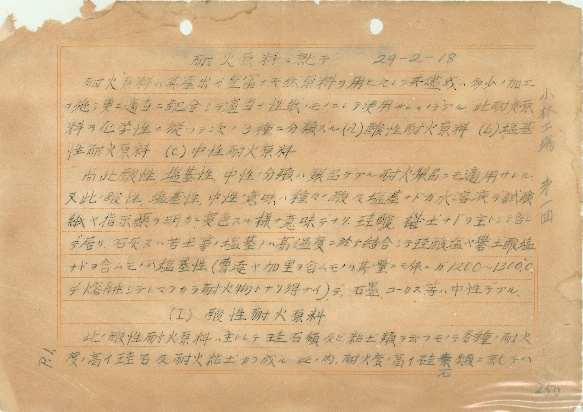 耐火原料ニ就テ 29-2-18
耐火原料ハ其産出ガ豊富ナ天然原料ヲ用ヒソレヲ其儘或ハ多少ノ加工
ヲ施シ更ニ適当ニ配合シテ適当ナ性状ノモノニシテ使分ケルノデアル 此耐火原
料ヲ化学性ニ従ッテ次ノ3種ニ分類スル (a)酸性耐火原料 (b)塩基
性耐火原料 (c)中性耐火原料
尚此酸性、塩基性、中性ノ分類ハ製品デアル耐火製品ニモ適用サレル
又此ノ酸性、塩基性、中性ノ意味ハ種々ノ酸及塩基ナドガ水溶液デ試験
紙や指示類ヲ明カニ変色スル様ナ意味デナク、珪酸、礬土ナドヲ主トシテ含ン
デ居リ、石灰又ハ苦土等ノ塩基トハ高温度ニ於テ結合シテ珪酸塩や礬土酸塩
ナドヲ含ムモノガ塩基性(曹達や加里ヲ含ムモノハ
1200〜1300℃
デ熔融シテシマフカラ耐火物トナリ得ナイ)デ、石墨、コークス等ハ中性デアル
(I) 酸性耐火原料
此ノ酸性耐火原料ハ主トシテ珪石類及ビ粘土類ヲ云フモノデ各種ノ耐火
度ノ高イ珪石及耐火粘土カラ成ル 此ノ内、耐火度ノ高イ硅石類ニ就テハ
小林工場 第一回
P.1.
250